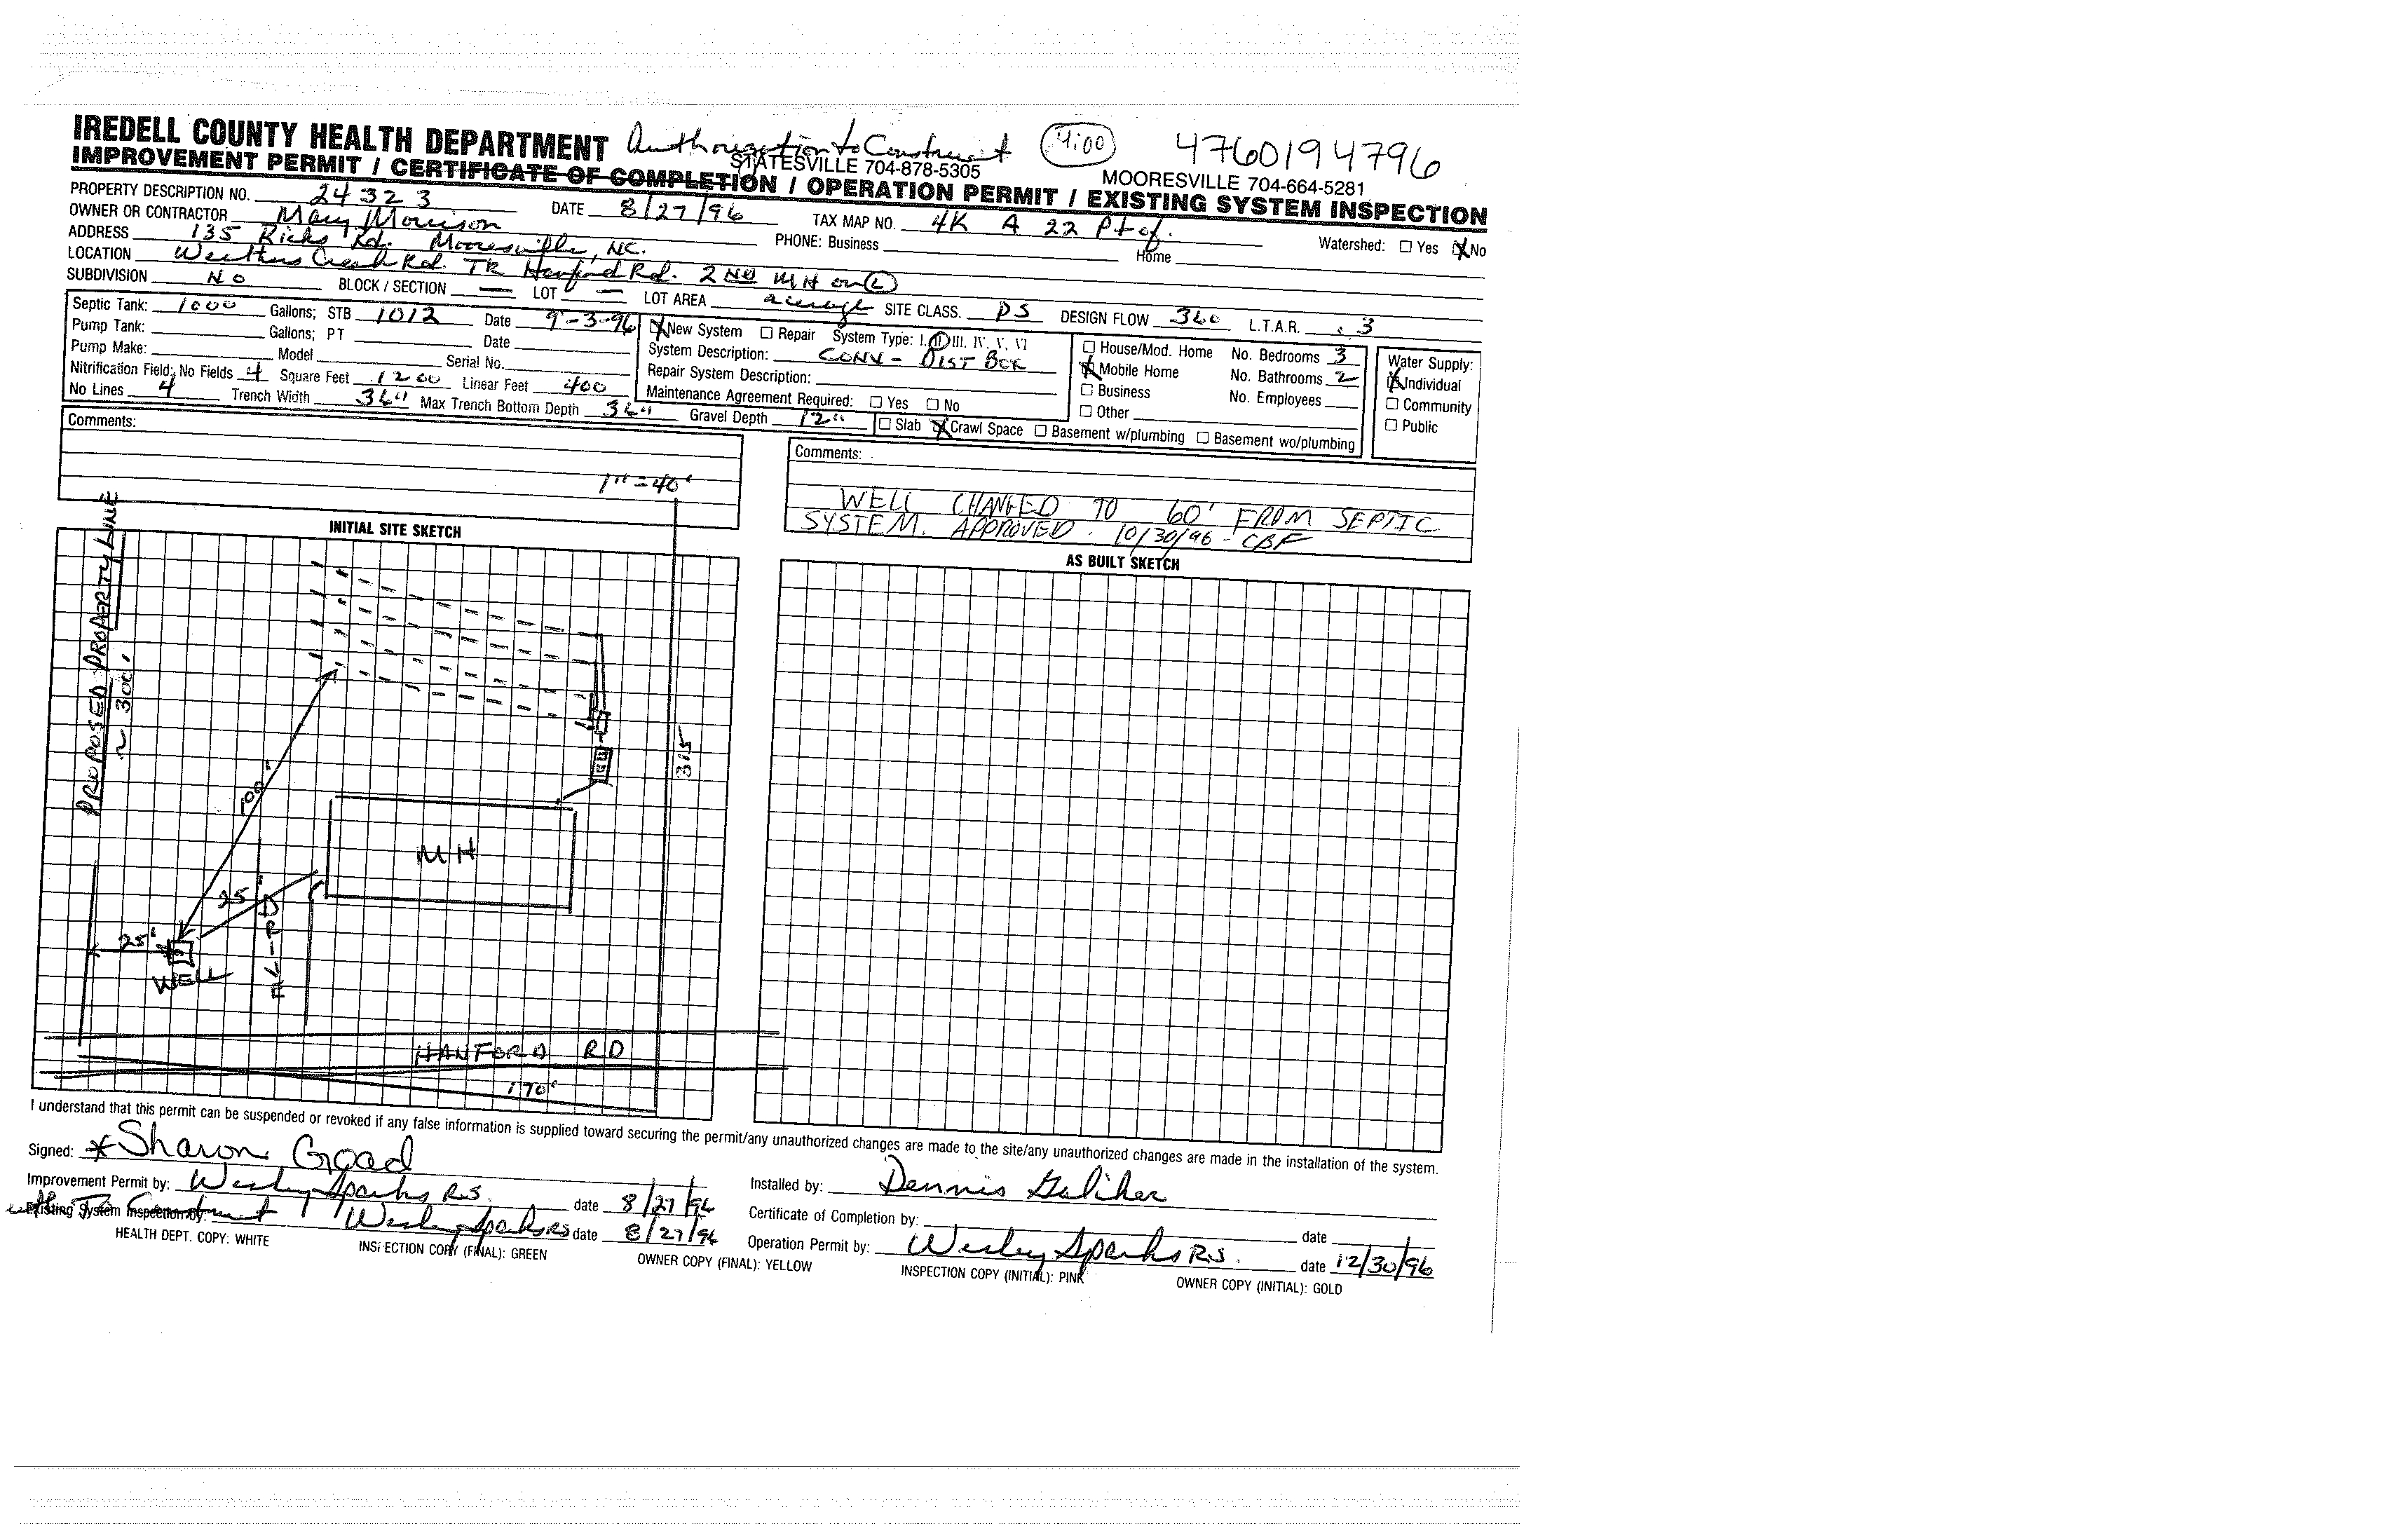 IREDELL COUNTY HEALTH DEPARTMENT Authorization to Construct 4:00 4760194796
STATESVILLE 704-878-5305 MOORESVILLE 704-664-5281
IMPROVEMENT PERMIT / CERTIFICATE OF COMPLETION / OPERATION PERMIT / EXISTING SYSTEM INSPECTION
PROPERTY DESCRIPTION NO. 24323 DATE 8/27/96 TAX MAP NO. 4K A 22 Pt of. Watershed: ☐ Yes ☒ No
OWNER OR CONTRACTOR Mary Morrison PHONE: Business Home
ADDRESS 135 Ricks Rd. Mooresville, NC.
LOCATION Weathers Creek Rd. TR Hanford Rd. 2ND MH on (L)
SUBDIVISION No BLOCK / SECTION — LOT — LOT AREA acreage SITE CLASS. PS DESIGN FLOW 360 L.T.A.R. .3
Septic Tank: 1000 Gallons; STB 1012 Date 9-3-96
Pump Tank: Gallons; PT Date
Pump Make: Model Serial No.
Nitrification Field; No Fields 4 Square Feet 1200 Linear Feet 400
No Lines 4 Trench Width 36" Max Trench Bottom Depth 36" Gravel Depth 12"
☒ New System ☐ Repair System Type: I. II III. IV. V. VI
System Description: CONV - DIST BOX
Repair System Description:
Maintenance Agreement Required: ☐ Yes ☐ No
☐ House/Mod. Home No. Bedrooms 3
☒ Mobile Home No. Bathrooms 2
☐ Business No. Employees
☐ Other
☐ Slab ☒ Crawl Space ☐ Basement w/plumbing ☐ Basement wo/plumbing
Water Supply:
☒ Individual
☐ Community
☐ Public
Comments:
1" = 40'
Comments:
WELL CHANGED TO 60' FROM SEPTIC
SYSTEM. APPROVED. 10/30/96 - CBF
INITIAL SITE SKETCH
AS BUILT SKETCH
PROPOSED PROPERTY LINE
~ 300'
315
100'
MH
25'
25'
WELL
HANFORD RD
170'
I understand that this permit can be suspended or revoked if any false information is supplied toward securing the permit/any unauthorized changes are made to the site/any unauthorized changes are made in the installation of the system.
Signed: *Sharon Goad
Improvement Permit by: Wesley Sparks R.S. date 8/27/96
Existing System Inspection by: To Construct Wesley Sparks RS date 8/27/96
Installed by: Dennis Galiher
Certificate of Completion by: date
Operation Permit by: Wesley Sparks R.S. date 12/30/96
HEALTH DEPT. COPY: WHITE INSPECTION COPY (FINAL): GREEN OWNER COPY (FINAL): YELLOW INSPECTION COPY (INITIAL): PINK OWNER COPY (INITIAL): GOLD